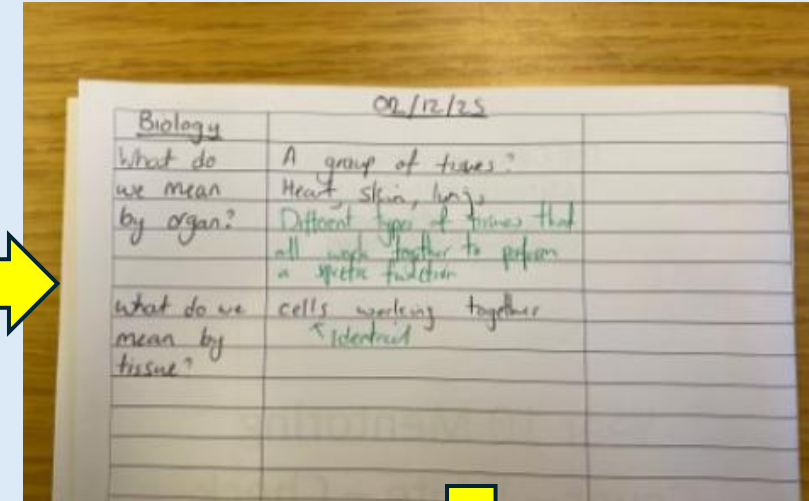 02/12/25
Biology
What do
we mean
by organ?
A group of tissues?
Heart, skin, lungs
Different types of tissues that
all work together to perform
a specific function
What do we
mean by
tissue?
cells working together
Identical